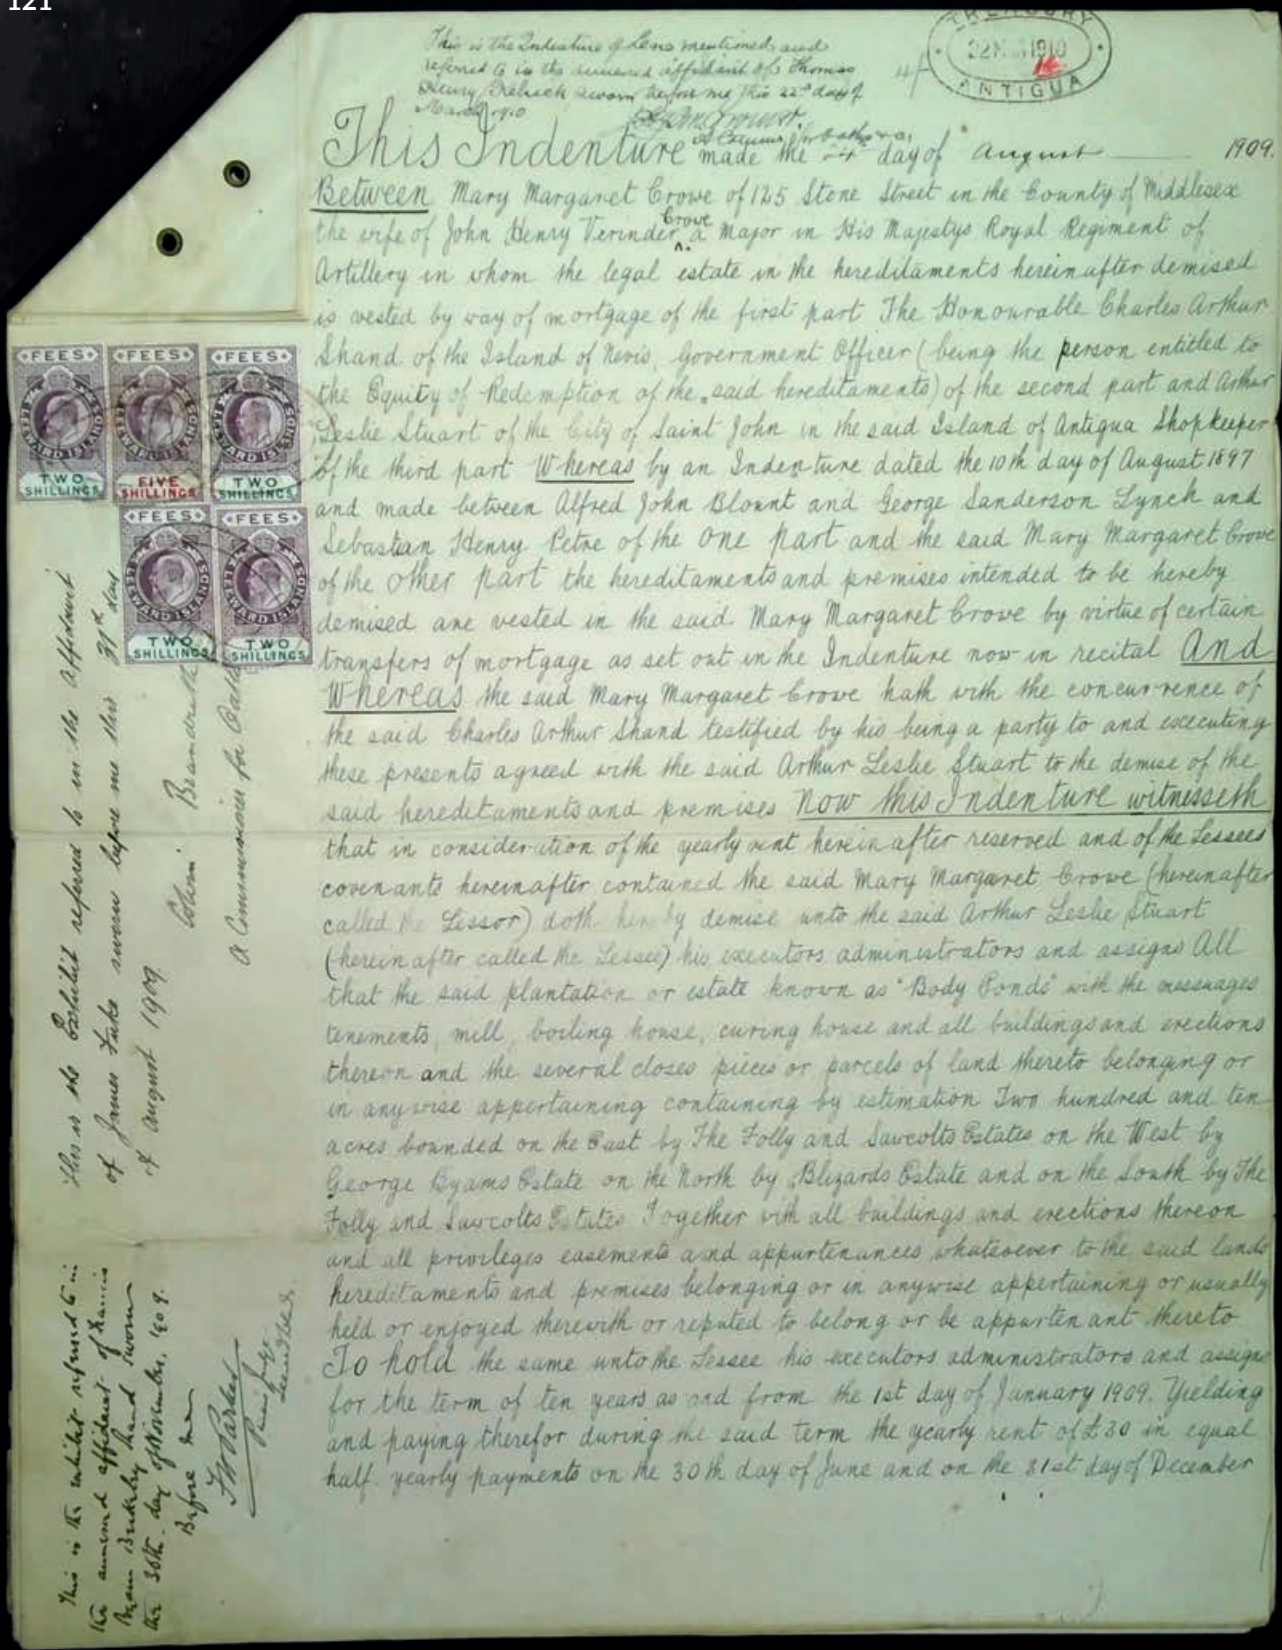 121
This is the Indenture of Lease mentioned and
referred to in the annexed affidavit of Thomas
Henry sworn before me this 22nd day of
March 1910
A Commr for oaths &c.
4/-
TREASURY
22 MAR 1910
ANTIGUA
This Indenture made the day of August 1909.
Between Mary Margaret Crowe of 125 Stone Street in the County of Middlesex
the wife of John Henry Verinder Crowe a Major in His Majestys Royal Regiment of
Artillery in whom the legal estate in the hereditaments hereinafter demised
is vested by way of mortgage of the first part The Honourable Charles Arthur
Shand of the Island of Nevis, Government Officer (being the person entitled to
the Equity of Redemption of the said hereditaments) of the second part and Arthur
Leslie Stuart of the City of Saint John in the said Island of Antigua Shopkeeper
of the third part Whereas by an Indenture dated the 10th day of August 1897
and made between Alfred John Blount and George Sanderson Lynch and
Sebastian Henry Petre of the one part and the said Mary Margaret Crowe
of the other part the hereditaments and premises intended to be hereby
demised are vested in the said Mary Margaret Crowe by virtue of certain
transfers of mortgage as set out in the Indenture now in recital And
Whereas the said Mary Margaret Crowe hath with the concurrence of
the said Charles Arthur Shand testified by his being a party to and executing
these presents agreed with the said Arthur Leslie Stuart to the demise of the
said hereditaments and premises Now this Indenture witnesseth
that in consideration of the yearly rent herein after reserved and of the Lessees
covenants hereinafter contained the said Mary Margaret Crowe (hereinafter
called the Lessor) doth hereby demise unto the said Arthur Leslie Stuart
(hereinafter called the Lessee) his executors administrators and assigns All
that the said plantation or estate known as "Body Ponds" with the messuages
tenements, mill, boiling house, curing house and all buildings and erections
thereon and the several closes pieces or parcels of land thereto belonging or
in anywise appertaining containing by estimation Two hundred and ten
acres bounded on the East by The Folly and Sawcolts Estates on the West by
George Byams Estate on the North by Blizards Estate and on the South by The
Folly and Sawcolts Estates Together with all buildings and erections thereon
and all privileges easements and appurtenances whatsoever to the said lands
hereditaments and premises belonging or in anywise appertaining or usually
held or enjoyed therewith or reputed to belong or be appurtenant thereto
To hold the same unto the Lessee his executors administrators and assigns
for the term of ten years as and from the 1st day of January 1909. Yielding
and paying therefor during the said term the yearly rent of £30 in equal
half yearly payments on the 30th day of June and on the 31st day of December
FEES
LEEWARD ISLANDS
TWO SHILLINGS
FEES
LEEWARD ISLANDS
FIVE SHILLINGS
FEES
LEEWARD ISLANDS
TWO SHILLINGS
FEES
LEEWARD ISLANDS
TWO SHILLINGS
FEES
LEEWARD ISLANDS
TWO SHILLINGS
This is the Exhibit referred to in the Affidavit
of James Luke sworn before me this 31st day
of August 1909
Colin
A Commissioner for Oaths
This is the exhibit referred to in
the annexed affidavit of Francis
sworn
the 30th day of November, 1909.
Before me